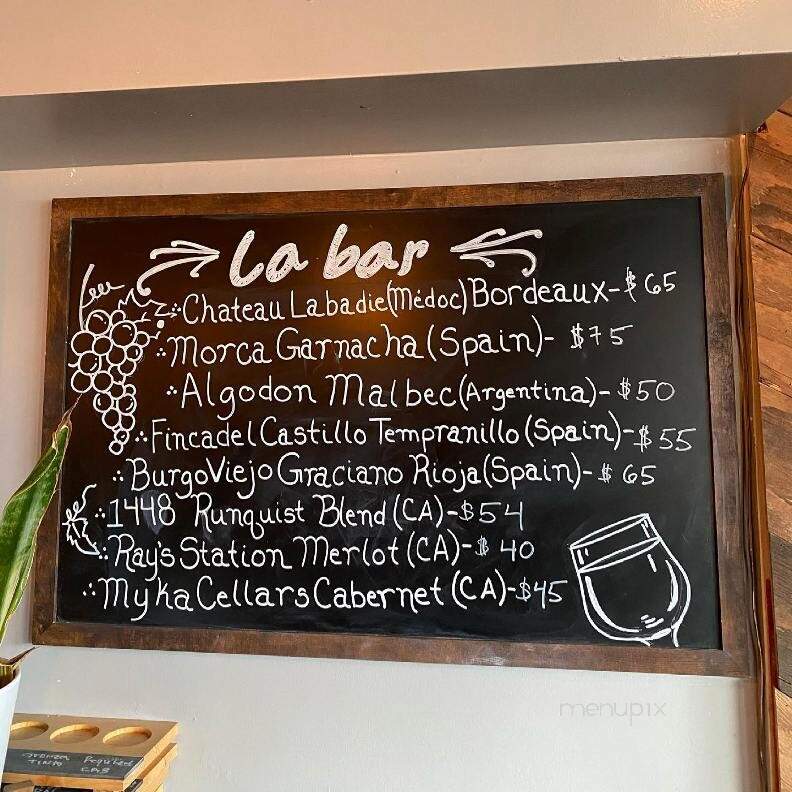 La bar
Chateau Labadie (Médoc) Bordeaux - $65
Morca Garnacha (Spain) - $75
Algodon Malbec (Argentina) - $50
Finca del Castillo Tempranillo (Spain) - $55
Burgo Viejo Graciano Rioja (Spain) - $65
1448 Runquist Blend (CA) - $54
Ray's Station Merlot (CA) - $40
Myka Cellars Cabernet (CA) - $45
menupix
TINTO
CAB